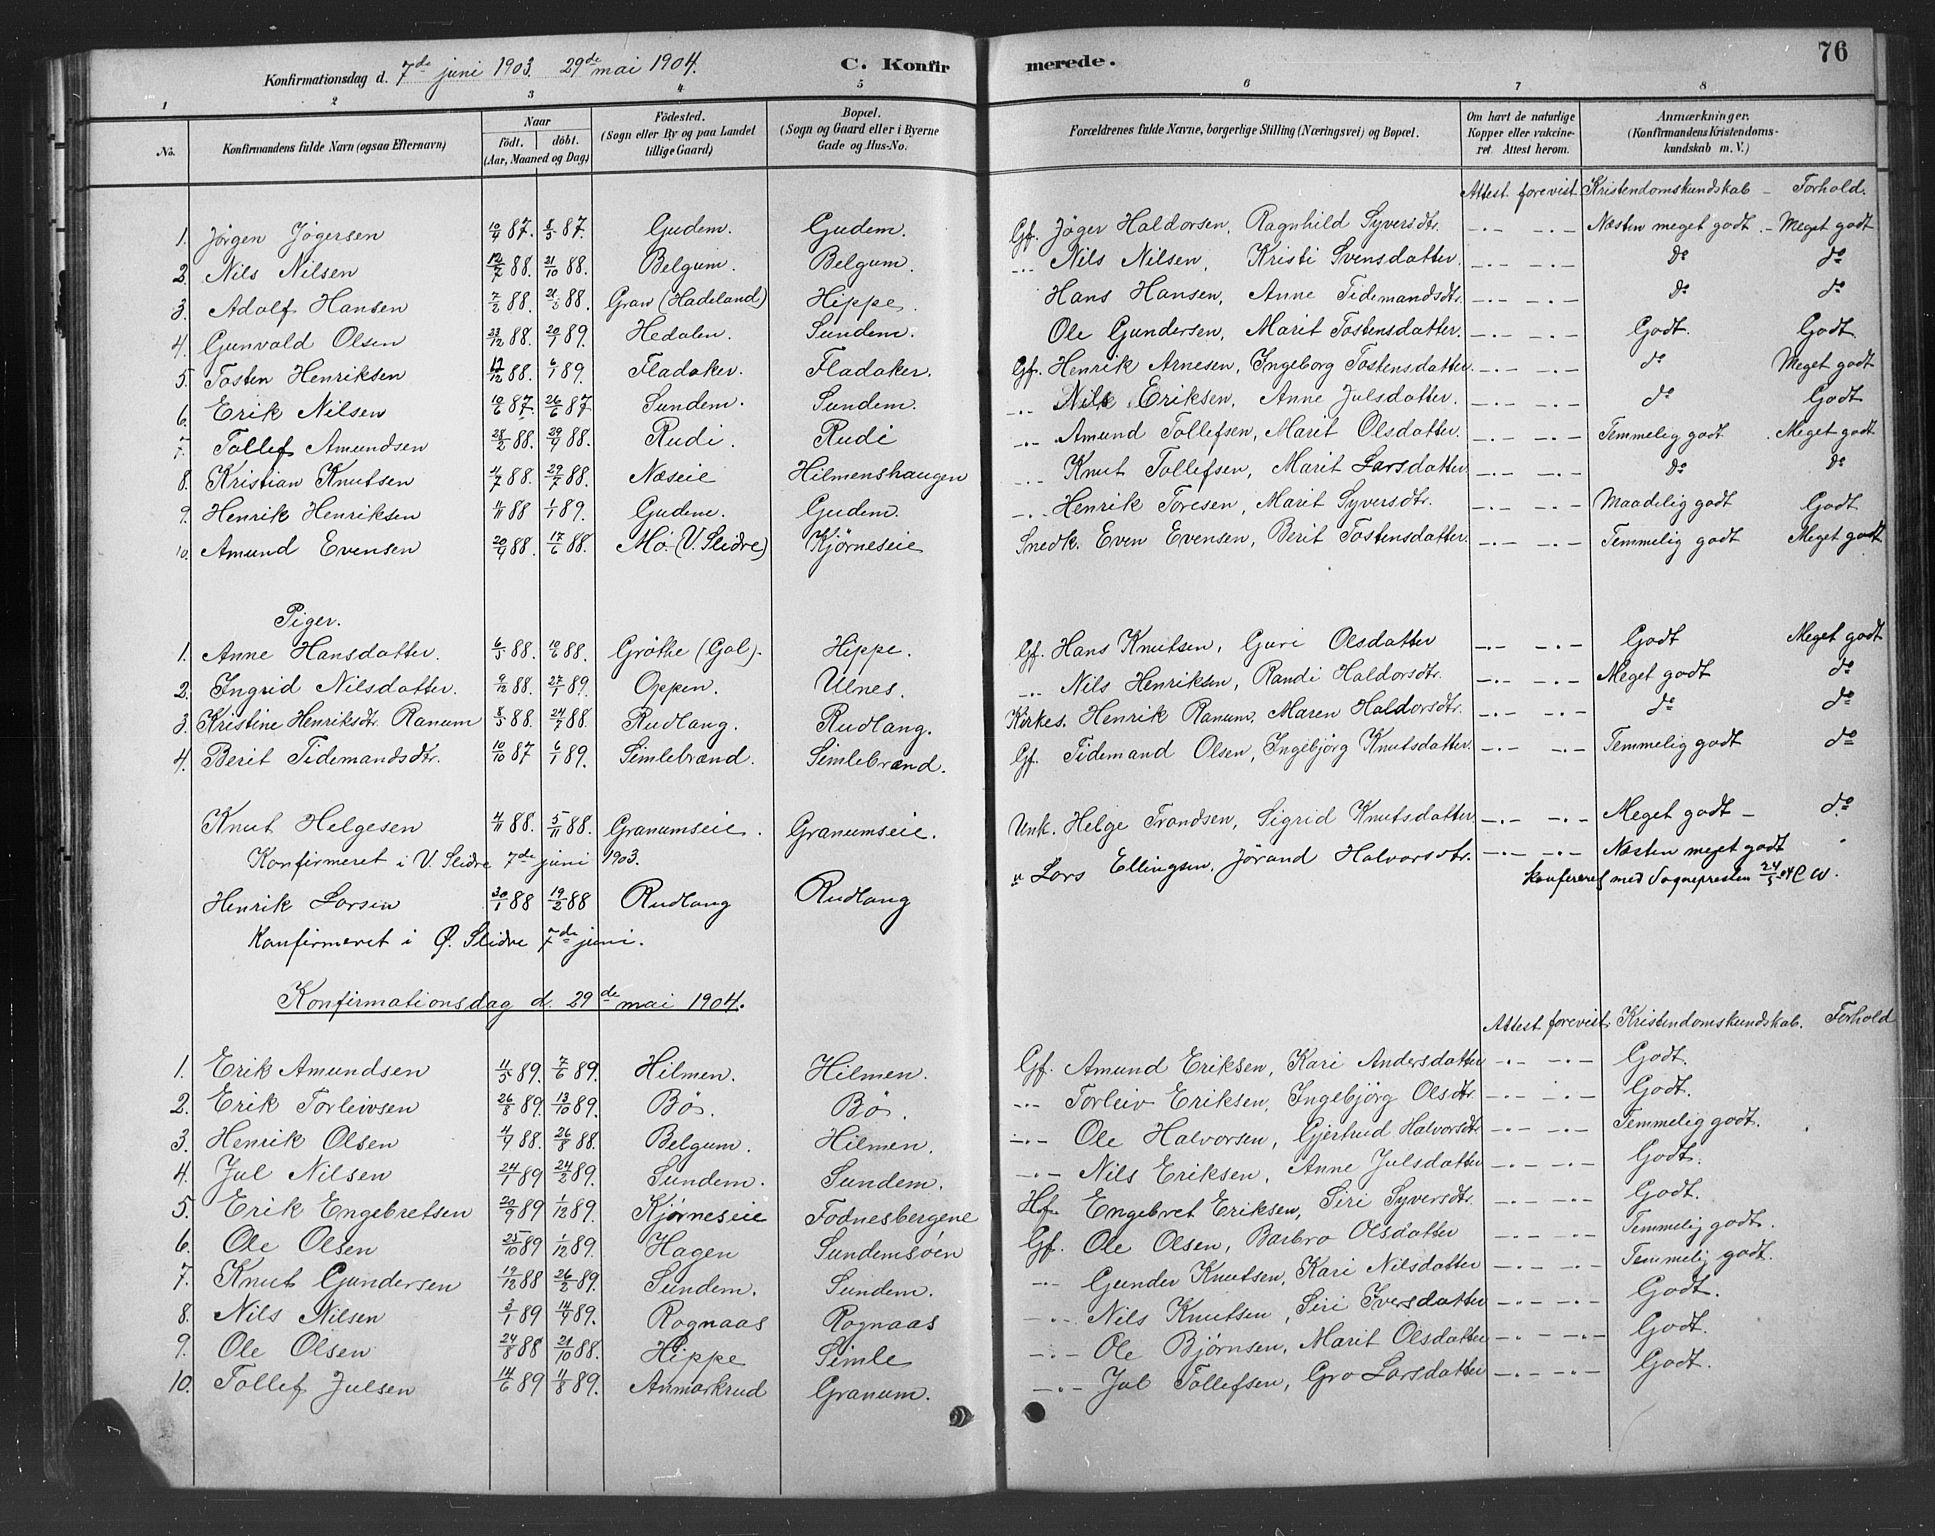 76
Konfirmationsdag d. 7de juni 1903. 29de mai 1904. C. Konfirmerede.
1 2 3 4 5 6 7 8
No. Konfirmandens fulde Navn (ogsaa Efternavn) Naar født. døbt. (Aar, Maaned og Dag) Fødested. (Sogn eller By og paa Landet tillige Gaard) Bopæl. (Sogn og Gaard eller i Byerne Gade og Hus-No. Forældrenes fulde Navne, borgerlige Stilling (Næringsvei) og Bopæl. Om havt de naturlige Kopper eller vakcineret. Attest herom. Anmærkninger. (Konfirmandens Kristendomskundskab m. V.)
Attest forevist. Kristendomskundskab - Forhold.
1. Jørgen Jøgersen 10/4 87. 8/5 87. Gudem. Gudem. Gf. Jøger Haldorsen, Ragnhild Syversdtr. -.- -.- Næsten meget godt. - Meget godt
2. Nils Nilsen 88. 21/10 88. Belgum. Belgum. -.- Nils Nilsen, Kristi Svensdatter. -.- -.- do do
3. Adolf Hansen 7/2 88. 88. Gran (Hadeland) Hippe. Hans Hansen, Anne Tidemandsdtr. -.- -.- do do
4. Gunvald Olsen 23/12 88. 20/1 89. Hedalen. Sundem. Ole Gundersen, Marit Tostensdatter. -.- -.- Godt. Godt.
5. Tosten Henriksen 88. 6/1 89. Fladaker. Fladaker. Gf. Henrik Arnesen, Ingeborg Tostensdatter. -.- -.- do Meget godt
6. Erik Nilsen 10/6 87. 26/6 87 Sundem. Sundem. -.- Nils Eriksen, Anne Julsdatter. -.- -.- do Godt
7. Tollef Amundsen 28/2 88. 88. Rudi. Rudi -.- Amund Tollefsen, Marit Olsdatter. -.- -.- Temmelig godt. Meget godt
8. Kristian Knutsen 4/7 88. 29/7 88. Næseie Hilmenshaugen -.- Knut Tollefsen, Marit Larsdatter -.- -.- do do
9. Henrik Henriksen 88 1/1 89. Gudem. Gudem. -.- Henrik Toresen, Marit Syversdtr. -.- -.- Maadelig godt Godt
10. Amund Evensen 88. 17/6 88. Mo. (V. Slidre) Kjørneseie Snedk. Even Evensen, Berit Tostensdatter. -.- -.- Temmelig godt Meget godt
Piger.
1. Anne Hansdatter. 6/5 88. 10/6 88. Grøthe (Gol). Hippe. Gf. Hans Knutsen, Guri Olsdatter -.- -.- Godt Meget godt
2. Ingrid Nilsdatter. 9/12 88. 27/1 89. Oppen. Ulnes. -.- Nils Henriksen, Randi Haldorsdtr. -.- -.- Meget godt do
3. Kristine Henriksdtr. Ranum 8/5 88. 88. Rudlang. Rudlang. Kirkes. Henrik Ranum. Maren Haldorsdtr. -.- -.- do do
4. Berit Tidemandsdtr. 10/10 87 6/1 89. Simlebrænd. Simlebrænd. Gf. Tidemand Olsen, Ingebjørg Knutsdatter. -.- -.- Temmelig godt do
Knut Helgesen 4/11 88. 5/11 88. Granumseie. Granumseie. Unk. Helge Trondsen, Sigrid Knutsdatter -.- -.- Meget godt - do
Konfirmeret i V. Slidre 7de juni 1903.
Henrik Larsen 30/1 88 19/2 88 Rudlang Rudlang " Lars Ellingsen, Jørand Halvorsdtr. -.- -.- Næsten meget godt
med Sognepresten 24/5 04
Konfirmeret i Ø. Slidre 7de juni.
Konfirmationsdag d. 29de mai 1904.
Attest forevist. Kristendomskundskab. Forhold
1. Erik Amundsen 89. 7/6 89. Hilmen. Hilmen. Gf. Amund Eriksen, Kari Andersdatter -.- -.- Godt.
2. Erik Torleivsen 26/8 89. 13/10 89. Bø. Bø. -.- Torleiv Eriksen, Ingebjørg Olsdtr. -.- -.- Godt.
3. Henrik Olsen 88. 26/8 88. Belgum. Hilmen. -.- Ole Halvorsen, Gjertrud Halvorsdtr -.- -.- Temmelig godt.
4. Jul Nilsen 24/1 89 24/2 89. Sundem. Sundem. -.- Nils Eriksen, Anne Julsdatter -.- -.- Godt.
5. Erik Engebretsen 89 1/12 89. Kjørneseie Fodnesbergene Hf. Engebret Eriksen, Siri Syversdtr. -.- -.- Godt.
6. Ole Olsen 25/10 89 1/12 89. Hagen Sundemsøen Gf. Ole Olsen, Barbro Olsdatter -.- -.- Temmelig godt.
7. Knut Gundersen 19/12 88 26/2 89. Sundem. Sundem. -.- Gunder Knutsen, Kari Nilsdatter -.- -.- Temmelig godt.
8. Nils Nilsen 89 89. Rognaas Rognaas -.- Nils Knutsen, Siri Iversdatter -.- -.- Godt.
9. Ole Olsen 24/8 88 21/10 88. Hippe Simle -.- Ole Bjørnsen, Marit Olsdatter -.- -.- Godt.
10. Tollef Julsen 14/6 89 89. Anmarkrud Granum. -.- Jul Tollefsen, Gro Larsdatter -.- -.- Godt.